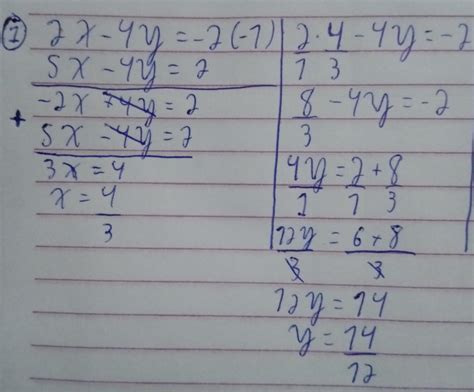 ① 2x - 4y = -2 (-1)
5x - 4y = 2
-2x + 4y = 2
+
5x - 4y = 2
3x = 4
x = 4/3
2/1 · 4/3 - 4y = -2
8/3 - 4y = -2
4y/1 = 2/1 + 8/3
12y/3 = 6 + 8/3
12y = 14
y = 14/12